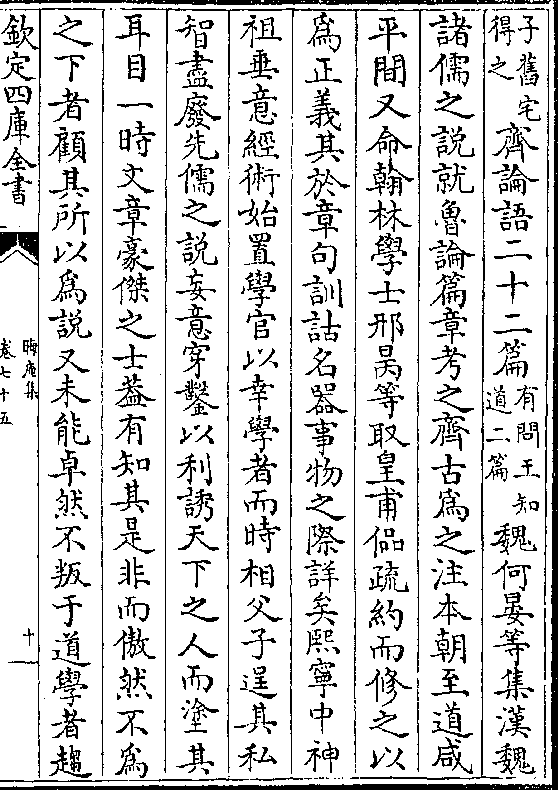 子舊宅
得之
齊論語二十二篇
有問王知
道二篇
魏何晏等集漢魏
諸儒之說就魯論篇章考之齊古爲之注本朝至道咸
平間又命翰林學士邢昺等取皇甫侃疏約而修之以
爲正義其於章句訓詁名器事物之際詳矣熙寧中神
祖垂意經術始置學官以幸學者而時相父子逞其私
智盡廢先儒之說妄意穿鑿以利誘天下之人而塗其
耳目一時文章豪傑之士葢有知其是非而傲然不爲
之下者顧其所以爲說又未能卓然不叛于道學者趨
欽定四庫全書
晦庵集
卷七十五
十